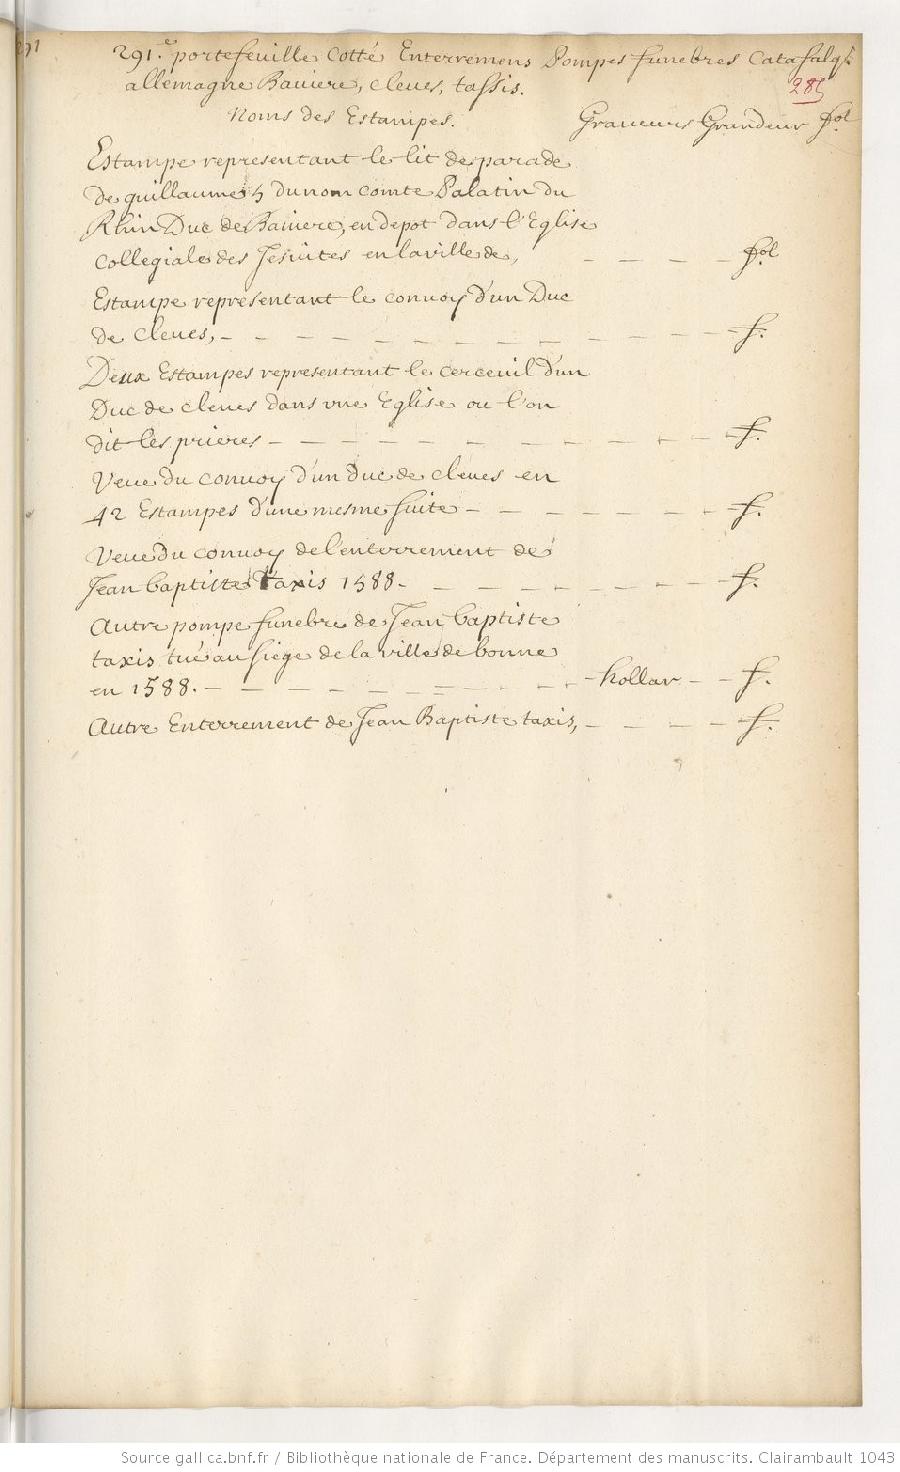 291.e portefeuille Cotté Enterremens Pompes funebres Catafalqs
allemagne Baviere, Cleves, tassis.
285
Noms des Estampes. Graveurs Grandeur fol.
Estampe representant le lit de parade
de guillaume 5 du nom comte Palatin du
Rhin Duc de Baviere, en depot dans l'Eglise
Collegiale des Jesuites en la ville de, _ _ _ _ fol.
Estampe representant le convoy d'un Duc
de Cleves, - - - - - - - - - - - - f.
Deux Estampes representant le cerceuil d'un
Duc de cleves dans une Eglise ou l'on
dit les prieres - - - - - - - - - - - f.
Veue du convoy d'un Duc de cleves en
42 Estampes d'une mesme suite - - - - - - - f.
Veue du convoy de l'enterrement de
Jean baptiste Taxis 1588. - - - - - - - f.
Autre pompe funebre de Jean baptiste
taxis tué au siege de la ville de bonne
en 1588. - - - - - - - - - - hollar - - f.
Autre Enterrement de Jean Baptiste taxis, - - - - f.
Source gallica.bnf.fr / Bibliothèque nationale de France. Département des manuscrits. Clairambault 1043